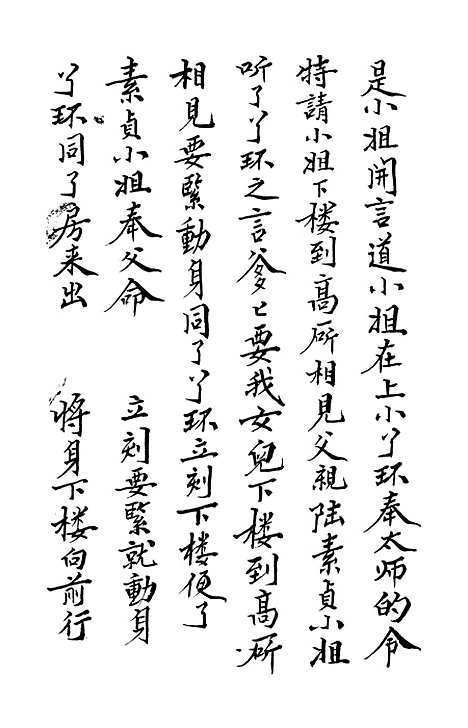 是小姐開言道小姐在上小丫环奉太师的令
特請小姐下楼到高厛相見父親陆素貞小姐
听了丫环之言爹〻要我女兒下楼到高厛
相見要緊動身同了丫环立刻下楼便了
素貞小姐奉父命　立刻要緊就動身
丫环同了房来出　将身下楼向前行